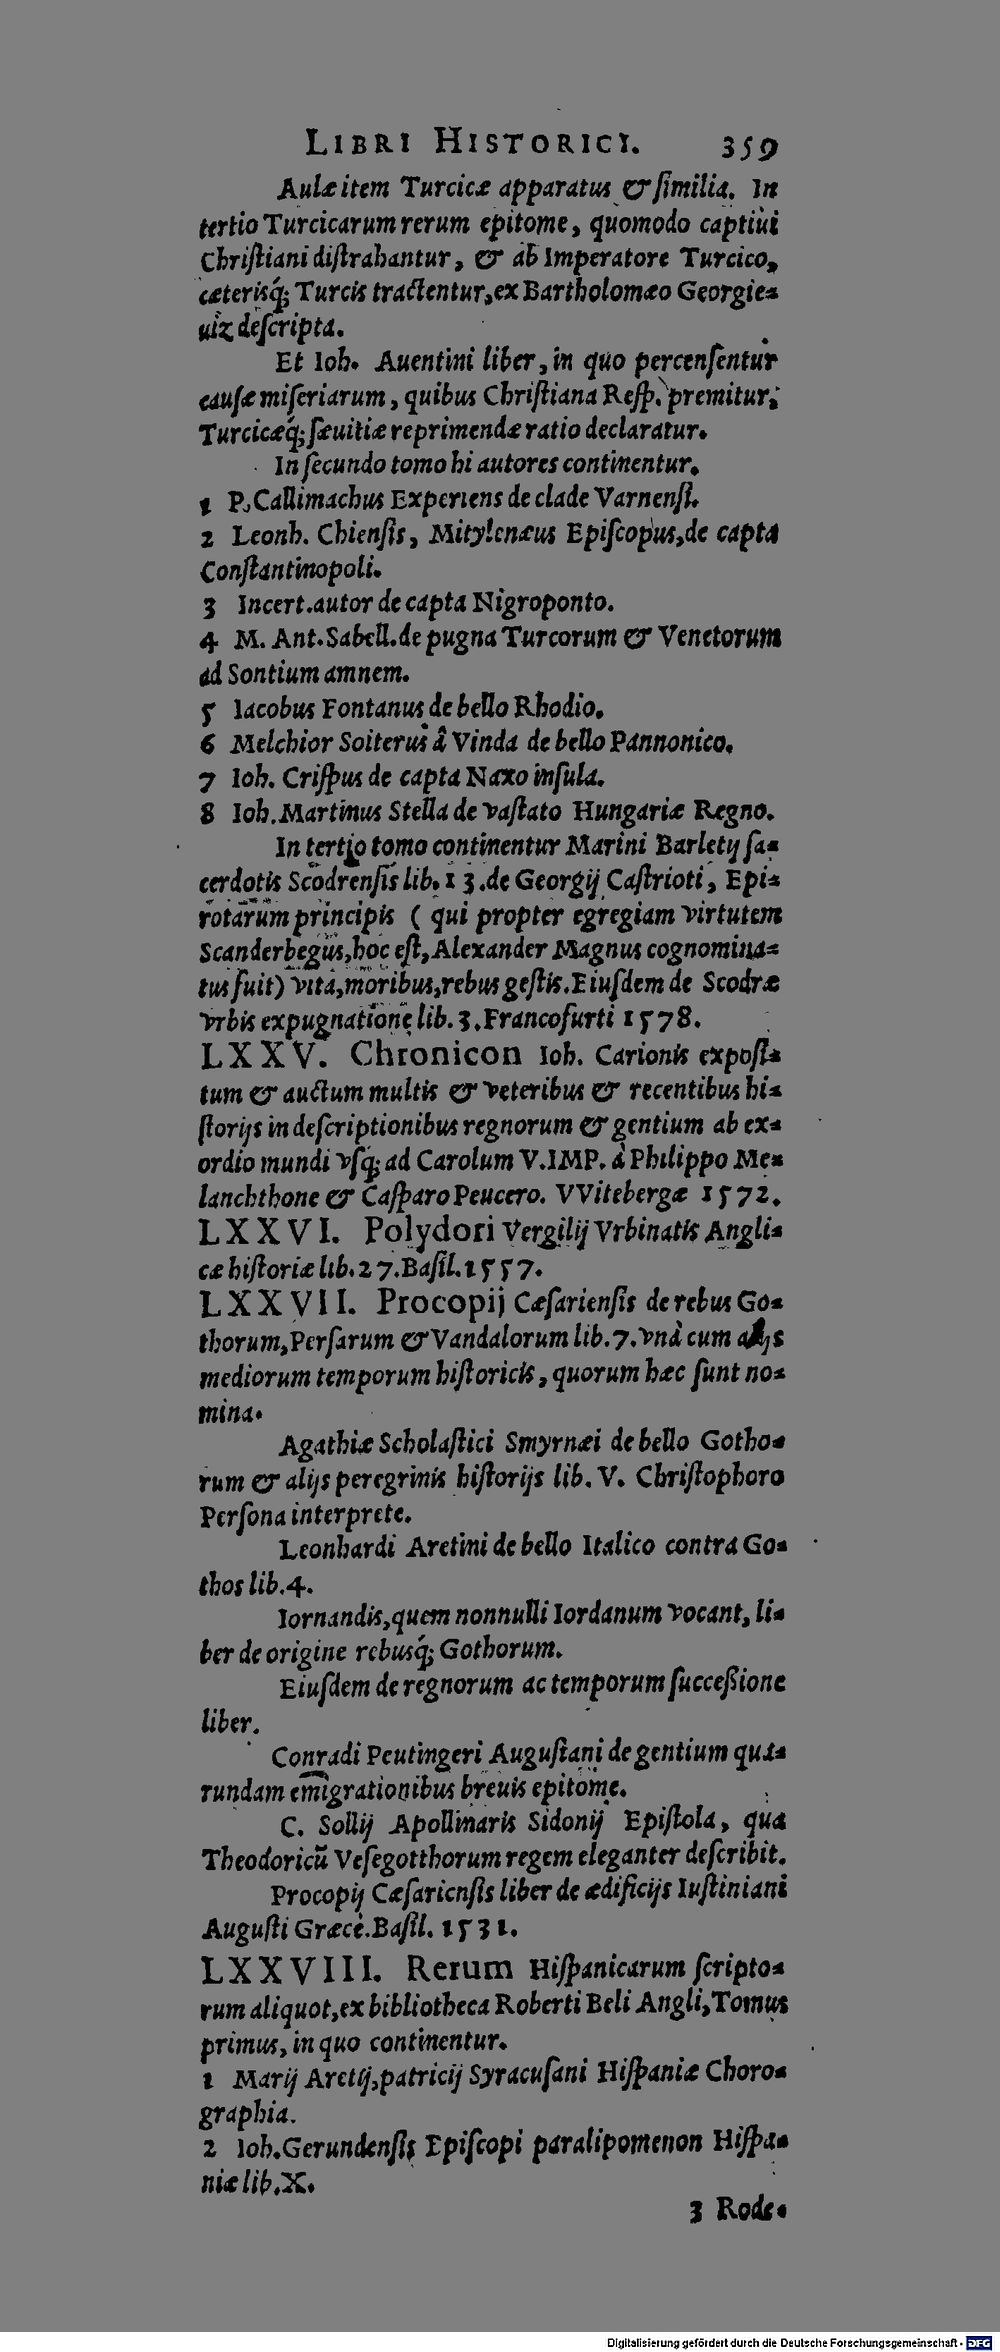 LIBRI HISTORICI. 359
Aulæ item Turcicæ apparatus & ſimilia. In
tertio Turcicarum rerum epitome, quomodo captiui
Chriſtiani diſtrahantur, & ab Imperatore Turcico,
cæterisq́; Turcis tractentur, ex Bartholomæo Georgie-
uiz deſcripta.
Et Ioh. Auentini liber, in quo percenſentur
cauſæ miſeriarum, quibus Chriſtiana Reſp. premitur,
Turcicæq́; ſæuitiæ reprimendæ ratio declaratur.
In ſecundo tomo hi autores continentur.
1 P. Callimachus Experiens de clade Varnenſi.
2 Leonh. Chienſis, Mitylenæus Epiſcopus, de capta
Conſtantinopoli.
3 Incert. autor de capta Nigroponto.
4 M. Ant. Sabell. de pugna Turcorum & Venetorum
ad Sontium amnem.
5 Iacobus Fontanus de bello Rhodio.
6 Melchior Soiterus â Vinda de bello Pannonico.
7 Ioh. Criſpus de capta Naxo inſula.
8 Ioh. Martinus Stella de vaſtato Hungariæ Regno.
In tertio tomo continentur Marini Barletij ſa-
cerdotis Scodrenſis lib. 13. de Georgij Caſtrioti, Epi-
rotarum principis ( qui propter egregiam virtutem
Scanderbegus, hoc eſt, Alexander Magnus cognomina-
tus fuit) vita, moribus, rebus geſtis. Eiuſdem de Scodræ
vrbis expugnatione lib. 3. Francofurti 1578.
LXXV. Chronicon Ioh. Carionis expoſi-
tum & auctum multis & veteribus & recentibus hi-
ſtorijs in deſcriptionibus regnorum & gentium ab ex-
ordio mundi vſq; ad Carolum V. IMP. à Philippo Me-
lanchthone & Caſparo Peucero. VVitebergæ 1572.
LXXVI. Polydori Vergilij Vrbinatis Angli-
cæ hiſtoriæ lib. 27. Baſil. 1557.
LXXVII. Procopij Cæſarienſis de rebus Go-
thorum, Perſarum & Vandalorum lib. 7. vnà cum alijs
mediorum temporum hiſtoricis, quorum hæc ſunt no-
mina.
Agathiæ Scholaſtici Smyrnæi de bello Gotho-
rum & alijs peregrinis hiſtorijs lib. V. Chriſtophoro
Perſona interprete.
Leonhardi Aretini de bello Italico contra Go-
thos lib. 4.
Iornandis, quem nonnulli Iordanum vocant, li-
ber de origine rebusq́; Gothorum.
Eiuſdem de regnorum ac temporum ſucceßione
liber.
Conradi Peutingeri Auguſtani de gentium qua-
rundam emigrationibus breuis epitome.
C. Sollij Apollinaris Sidonij Epiſtola, qua
Theodoricū Veſegotthorum regem eleganter deſcribit.
Procopij Cæſarienſis liber de ædificijs Iuſtiniani
Auguſti Græcè. Baſil. 1531.
LXXVIII. Rerum Hiſpanicarum ſcripto-
rum aliquot, ex bibliotheca Roberti Beli Angli, Tomus
primus, in quo continentur.
1 Marij Aretij, patricij Syracuſani Hiſpaniæ Choro-
graphia.
2 Ioh. Gerundenſis Epiſcopi paralipomenon Hiſpa-
niæ lib. X.
3 Rode-
Digitalisierung gefördert durch die Deutsche Forschungsgemeinschaft - DFG